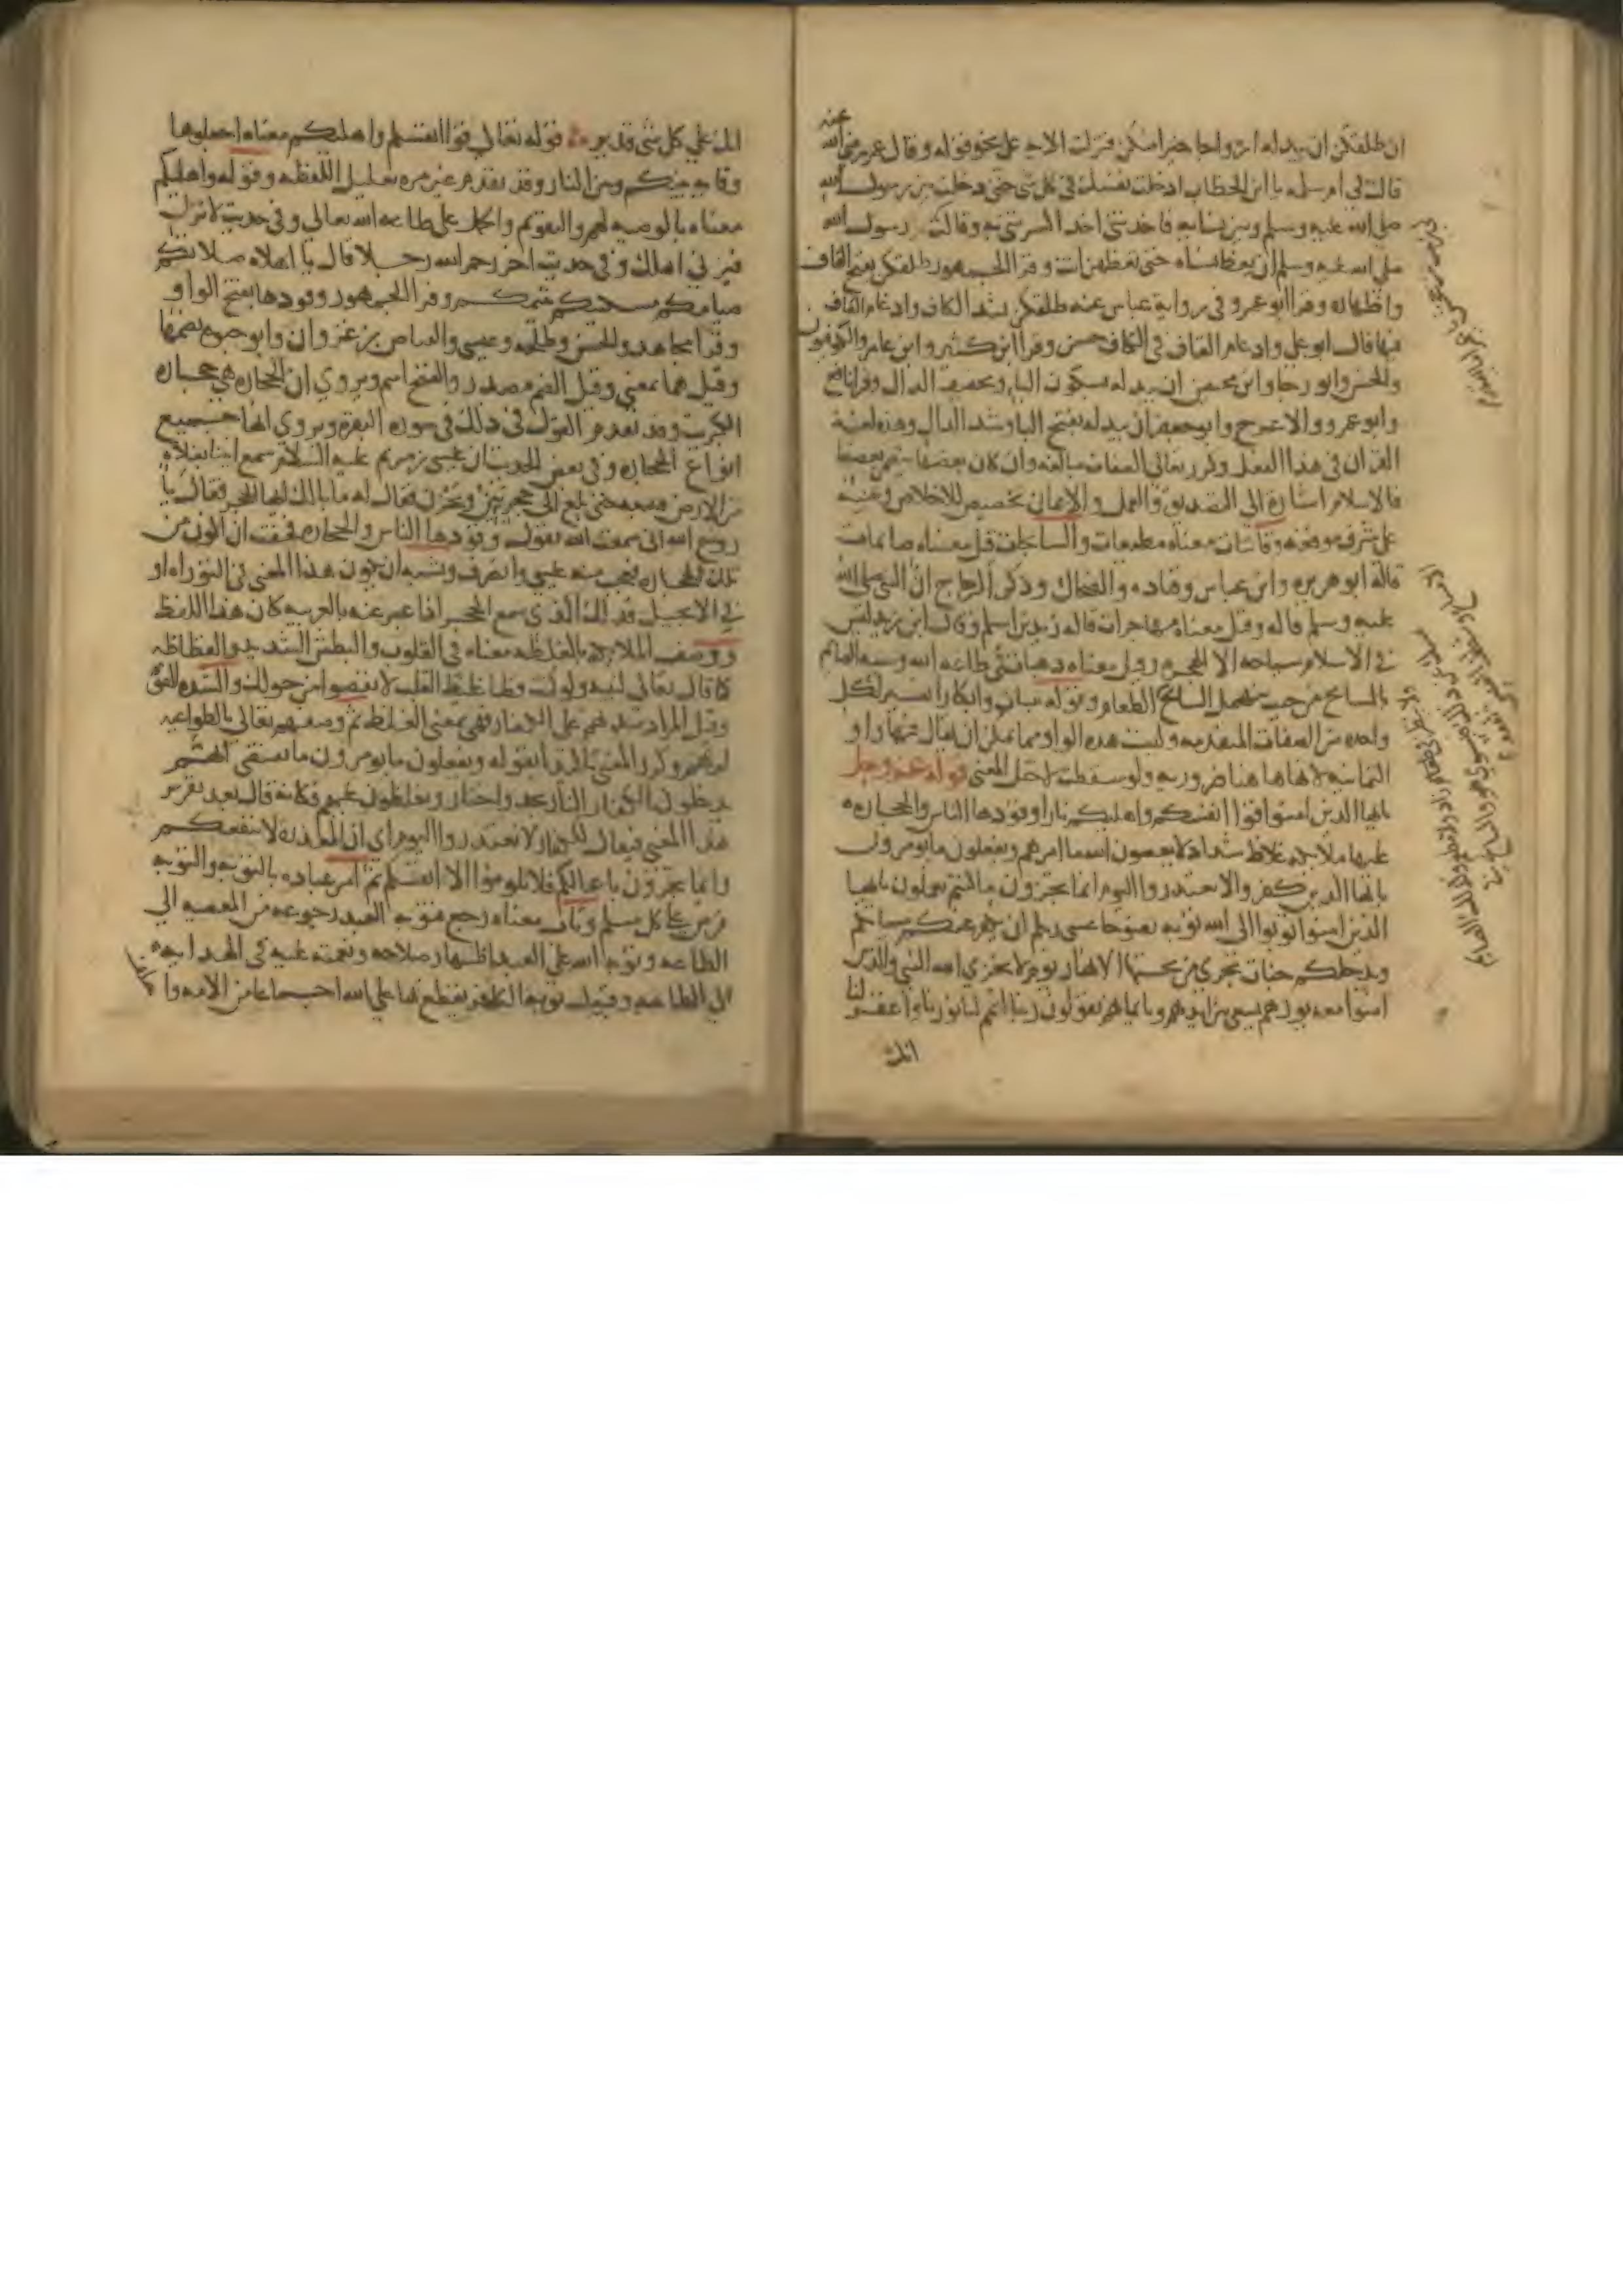 ان طلقكن ان يبدله ازواجا خيرا منكن فنزلت الاية على نحو قوله وقال عمر رضي الله عنه
قالت لي ام سلمه يا ابن الخطاب ادخلت نفسك في كل شي حتى دخلت بين رسول الله
صلى الله عليه وسلم وبين نسايه فاخذتني اخذا كسرتني به وقالت رسول الله
صلى الله عليه وسلم ان يعظ نساه حتى تعظهن انت وقرا الجمهور طلقكن بفتح القاف
واظهاره وقرا ابو عمرو في رواية عباس عنه طلقكن بشد الكاف وادغام القاف
فيها قال ابو علي وادغام القاف في الكاف حسن وقرا ابن كثير وابن عامر والكوفيون
والحسن وابو رجا وابن محيصن ان يبدله بسكون الباء وتخفيف الدال وقرا نافع
وابو عمرو والاعرج وابو جعفر ان يبدله بفتح الباء وشد الدال وهذه لغة
القران في هذا الفعل وكرر تعالى الصفات مبالغه وان كان بعضها يتضمن بعضها
فالاسلام اشارة الى التصديق والعمل والايمان تخصيص للاخلاص وتنبيه
على شرف موضعه وقانتات معناه مطيعات والسايحات قيل معناه صايمات
قاله ابو هريره وابن عباس وقتاده والضحاك وذكر الزجاج ان النبي صلى الله
عليه وسلم قاله وقيل معناه مهاجرات قاله زيد بن اسلم وقال ابن زيد ليس
في الاسلام سياحه الا الهجره وقيل معناه ذاهبات في طاعه الله وشبه الصايم
بالسايح من حيث ينهمل السايح الطعام وقوله ثيبات وابكارا تقسيم لكل
واحده من الصفات المتقدمه وليست هذه الواو مما يمكن ان يقال فيها واو
الثمانيه لانها هاهنا ضروريه ولو سقطت لاختل المعنى قوله عز وجل
يا ايها الذين امنوا قوا انفسكم واهليكم نارا وقودها الناس والحجاره
عليها ملايكه غلاظ شداد لا يعصون الله ما امرهم ويفعلون ما يومرون
يا ايها الذين كفروا لا تعتذروا اليوم انما تجزون ما كنتم تعملون يا ايها
الذين امنوا توبوا الى الله توبه نصوحا عسى ربكم ان يكفر عنكم سياتكم
ويدخلكم جنات تجري من تحتها الانهار يوم لا يخزي الله النبي والذين
امنوا معه نورهم يسعى بين ايديهم وبايمانهم يقولون ربنا اتمم لنا نورنا واغفر لنا
انك
انك على كل شي قدير قوله تعالى قوا انفسكم واهليكم معناه اجعلوها
وقايه بينكم وبين النار وقد تقدم غير مره تعليل اللفظه وقوله واهليكم
معناه بالوصيه لهم والتقويم والحمل على طاعه الله تعالى وفي حديث لا تزن
في اهلك وفي حديث اخر رحم الله رجلا قال يا اهلاه صلاتكم
صيامكم مسكينكم يتيمكم وقرا الجمهور وقودها بفتح الواو
وقرا مجاهد والحسن وطلحه وعيسى والفياض بن غزوان وابو حيوه بضمها
وقيل هما بمعنى وقيل الضم مصدر والفتح اسم ويروى ان الحجاره هي حجاره
الكبريت وقد تقدم القول في ذلك في سوره البقره ويروى انها جميع
انواع الحجاره وفي بعض الحديث ان عيسى بن مريم عليه السلام سمع انينا بفلاه
من الارض فتبعه حتى بلغ الى حجر يئن ويحزن فقال له ما بالك ايها الحجر فقال يا
روح الله اني سمعت الله يقول وقودها الناس والحجاره فخفت ان اكون من
تلك الحجاره فعجب منه عيسى وانصرف ويشبه ان يكون هذا المعنى في التوراه او
في الانجيل فذلك الذي سمع الحجر اذا عبر عنه بالعربيه كان هذا اللفظ
ووصف الملايكه بالغلظه معناه في القلوب والبطش الشديد والفظاظه
كما قال تعالى لنبيه ولو كنت فظا غليظ القلب لانفضوا من حولك والشده القوه
وقيل المراد شدتهم على الكفار فهي بمعنى الغلظ ثم وصفهم تعالى بالطواعيه
لربهم وكرر المعنى تاكيدا بقوله ويفعلون ما يومرون
يدخلون الكفار النار
هذا المعنى فيقال للكفار لا تعتذروا اليوم اي ان المعذره لا تنفعكم
وانما تجزون باعمالكم فلا تلوموا الا انفسكم ثم امر عباده بالتوبه والتوبه
فرض على كل مسلم وتاب معناه رجع فتوبه العبد رجوعه من المعصيه الى
الطاعه وتوبه الله على العبد اظهار صلاحه ونعمته عليه في الهدايه
الى الطاعه وقبول توبه الكافر يقطع بها على الله اجماعا من الامه وا